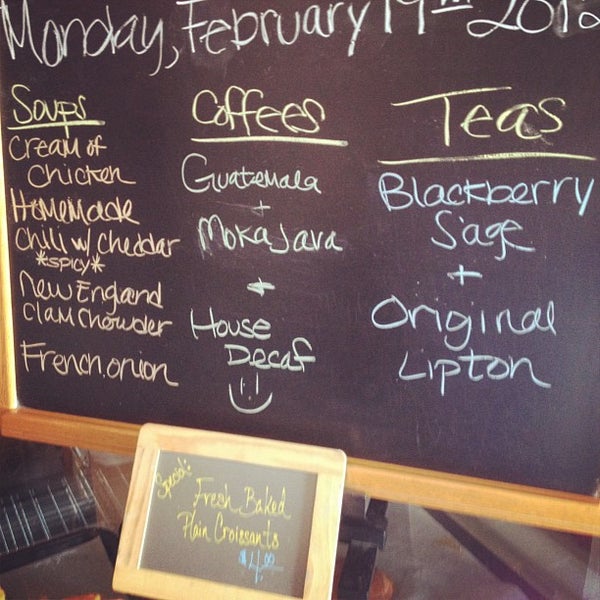 Monday, February 19th 2018
Soups
Cream of
Chicken
Homemade
Chili w/ Cheddar
*spicy*
New England
Clam Chowder
French onion
Coffees
Guatemala
+
Moka Java
+
House
Decaf
Teas
Blackberry
Sage
+
Original
Lipton
Special:
Fresh Baked
Plain Croissants
$4.00